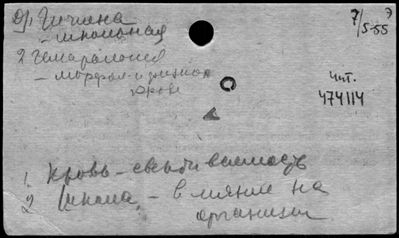 2) Гигиена
- школьная
2 Гематология
- морфол. и физиол.
крови
7/5-55
Чит.
474114
1. Кровь - свертываемость
2 Школа, - влияние на
организм